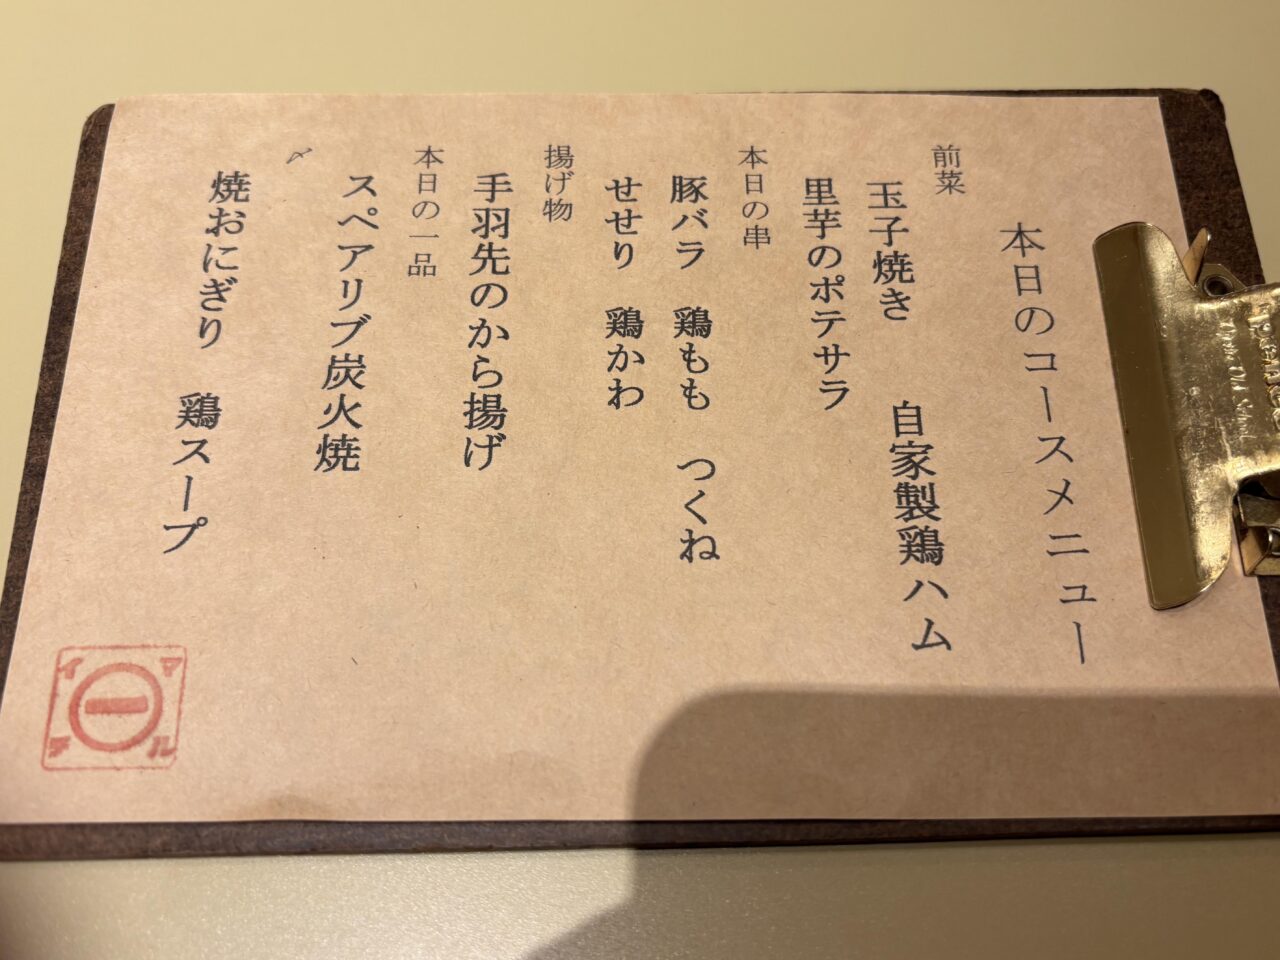 本日のコースメニュー
前菜
玉子焼き 自家製鶏ハム
里芋のポテサラ
本日の串
豚バラ 鶏もも つくね
せせり 鶏かわ
揚げ物
手羽先のから揚げ
本日の一品
スペアリブ炭火焼
〆
焼おにぎり 鶏スープ
マルイチ